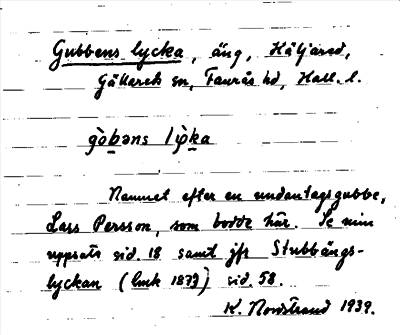 Gubbens lycka, äng, Häljared,
Gällareds sn, Faurås hd, Hall. l.
gòbəns lỳka
Namnet efter en undantagsgubbe,
Lars Persson, som bodde här. Se min
uppsats sid. 18 samt jfr Stubbängs-
lyckan (lmk 1873) sid. 58.
K. Nordstrand 1939.